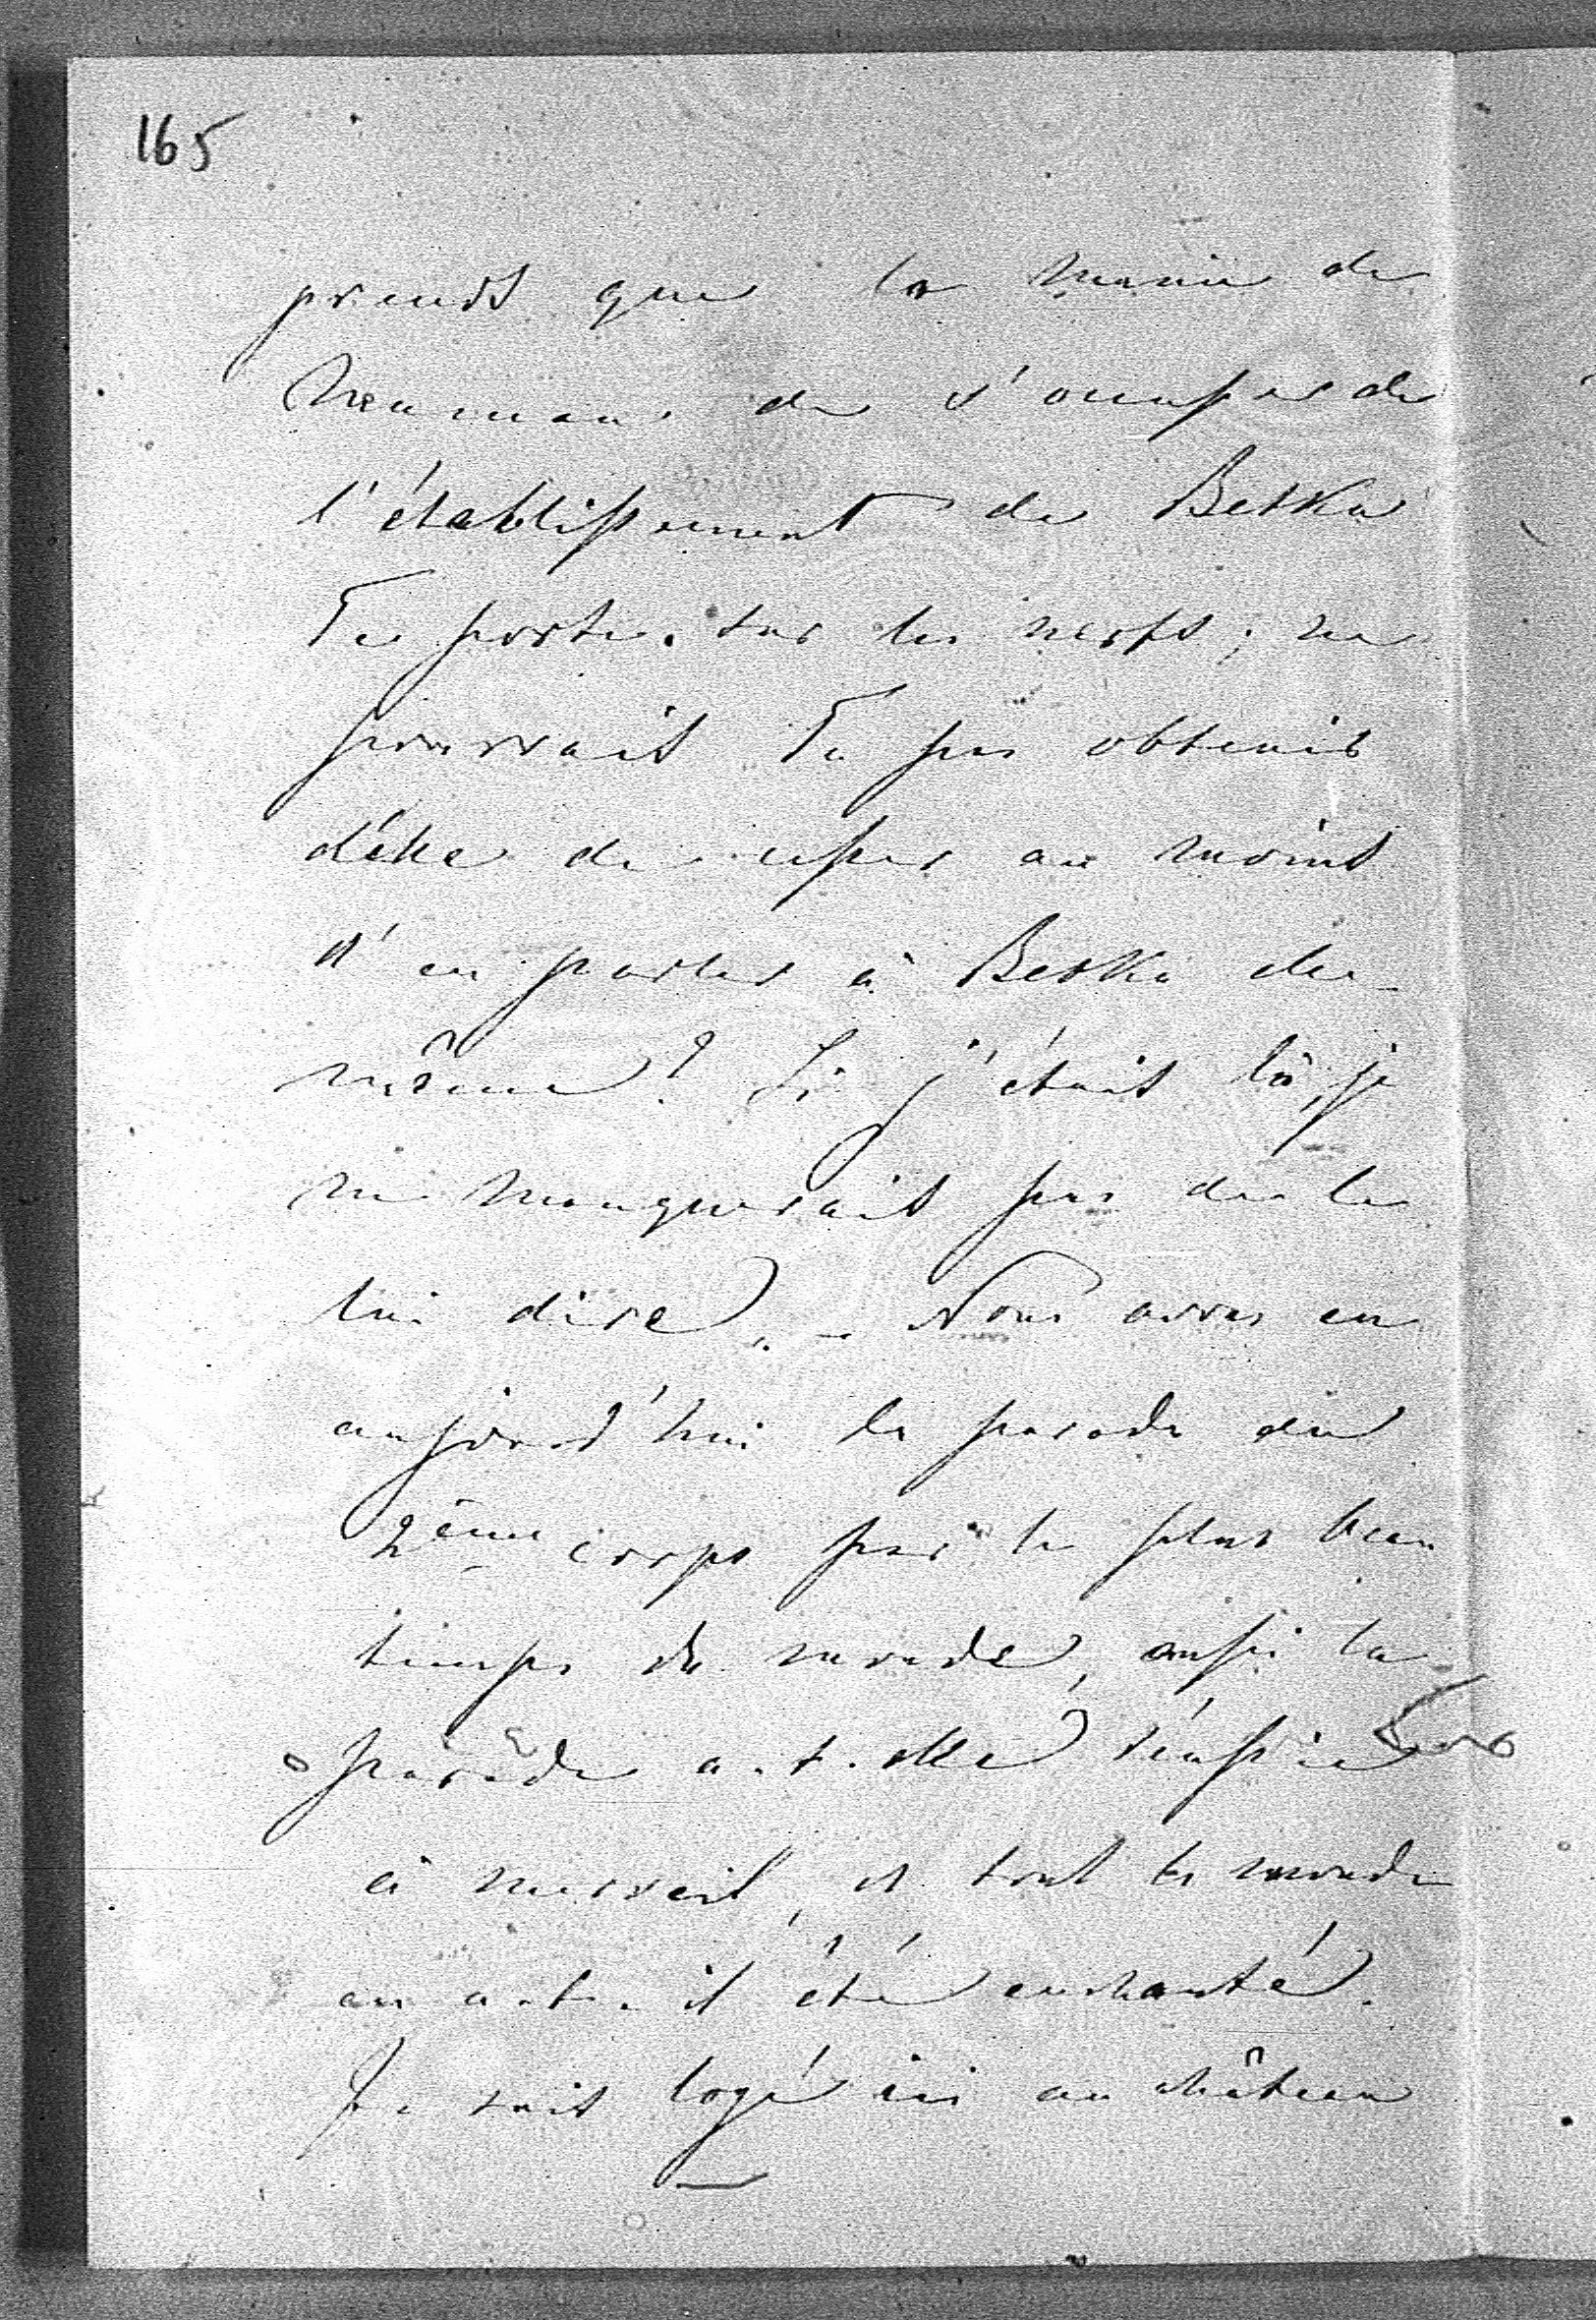 165
prends que la manie de
Neumann de s'occuper de
l'établissement de Betka
Te porte sur les nerfs; ne
pourrait Tu pas obtenir
d'elle de cesser au moins
d'en parler à Betka de
même? Si j'étais là, je
ne manquerais pas de le
lui dire. - Nous avons eu
aujourd'hui la parade du
2ème corps par le plus beau
temps du monde, aussi la
parade a-t-elle réussie
à merveil, et tout le monde
en a-t-il été enchanté.
Je suis logé ici au château